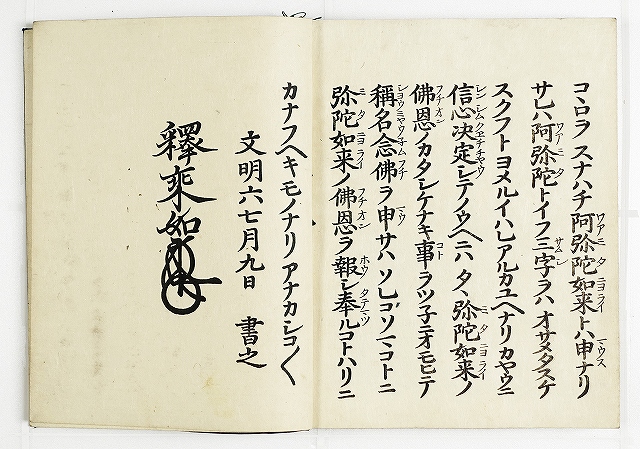 コヽロヲスナハチ阿弥陀如来トハ申ナリ
サレハ阿弥陀トイフ三字ヲハオサメタスケ
スクフトヨメルイハレアルカユヘナリカヤウニ
信心决定シテノウヘニハタヽ弥陀如来ノ
佛恩ノカタシケナキ事ヲツ子ニオモヒテ
稱名念佛ヲ申サハソレコソマコトニ
弥陀如来ノ佛恩ヲ報シ奉ルコトハリニ
カナフヘキモノナリアナカシコ〱
文明六七月九日 書之
釋乘如